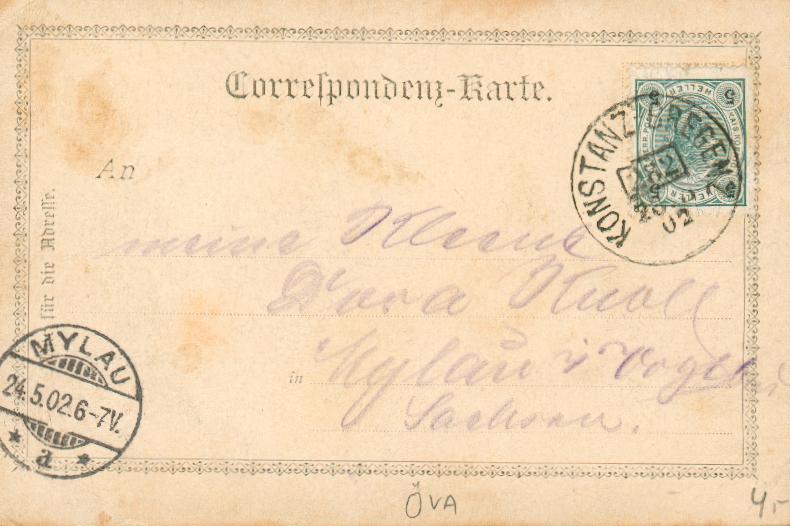 Correspondenz-Karte.
An
meine Kleene
Dora Knoll
in Mylau i Vogtl
Sachsen.
für die Adresse.
KONSTANZ-BREGENZ
02
5 HELLER 5
MYLAU
24.5.02.6-7V.
* a *
ÖVA
4,-